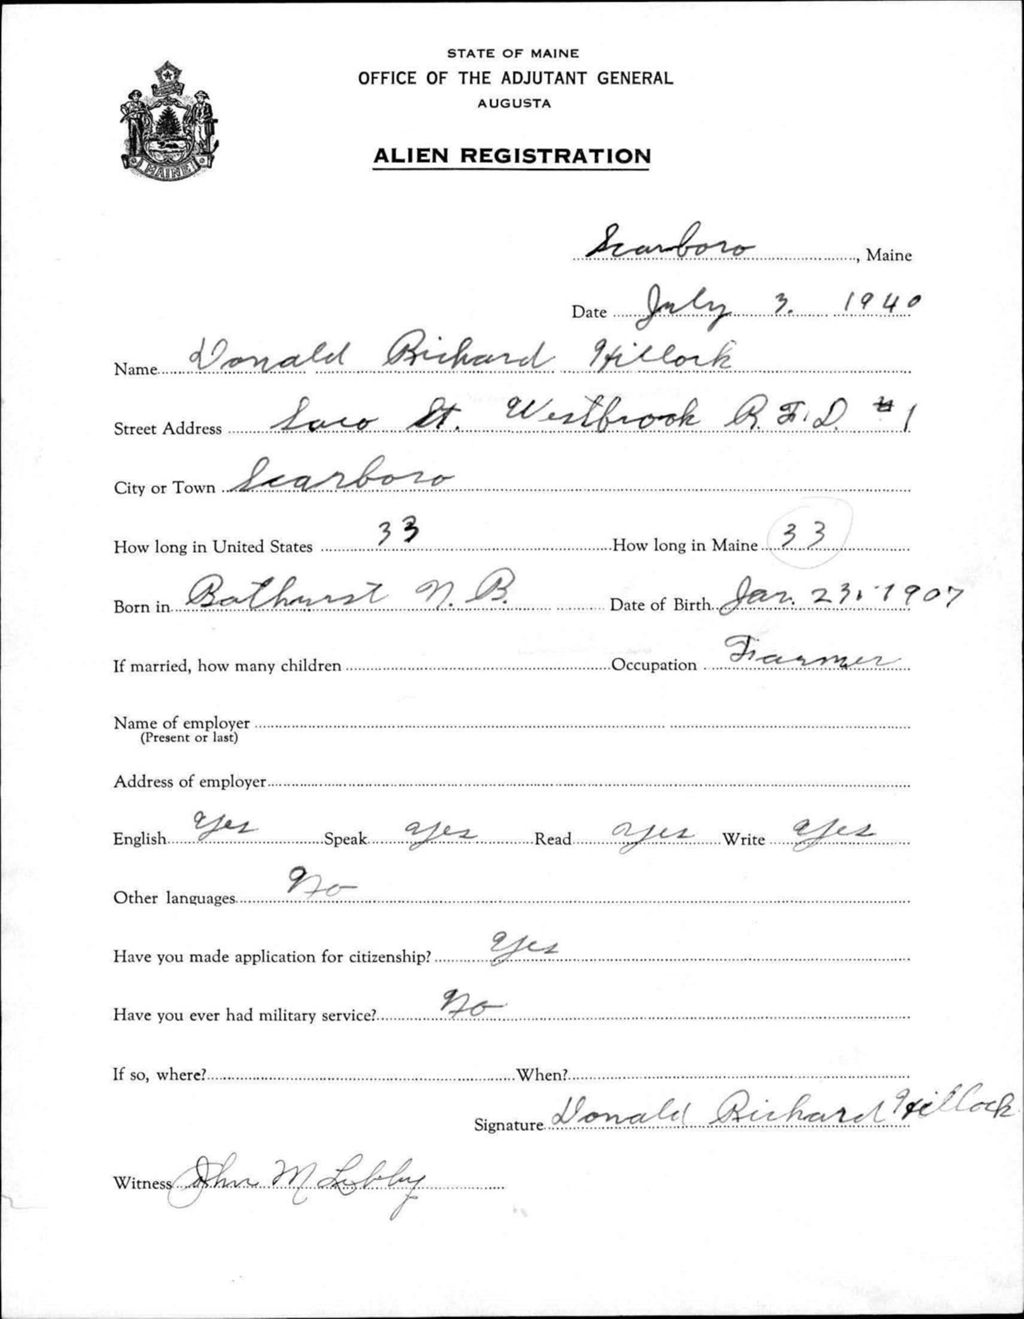 STATE OF MAINE
OFFICE OF THE ADJUTANT GENERAL
AUGUSTA
ALIEN REGISTRATION
MAINE
Scarboro, Maine
Date July 3. 1940
Name Donald Richard Hillock
Street Address Saco St. Westbrook R.F.D. #1
City or Town Scarboro
How long in United States 33 How long in Maine 33
Born in Bathurst N.B. Date of Birth Jan. 23, 1907
If married, how many children Occupation Farmer
Name of employer
(Present or last)
Address of employer
English Yes Speak Yes Read Yes Write Yes
Other languages No
Have you made application for citizenship? Yes
Have you ever had military service? No
If so, where? When?
Signature Donald Richard Hillock
Witness John M Libby